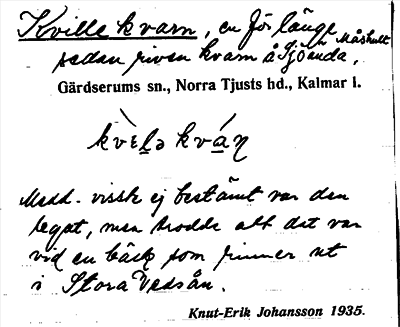 Kvillekvarn, en för länge
sedan riven kvarn å Sjöända, Måshult
Gärdserums sn., Norra Tjusts hd., Kalmar l.
kvɛ̀lə kván
Medd. visste ej bestämt var den
legat, men trodde att det var
vid en bäck som rinner ut
i Stora Vedsån.
Knut-Erik Johansson 1935.